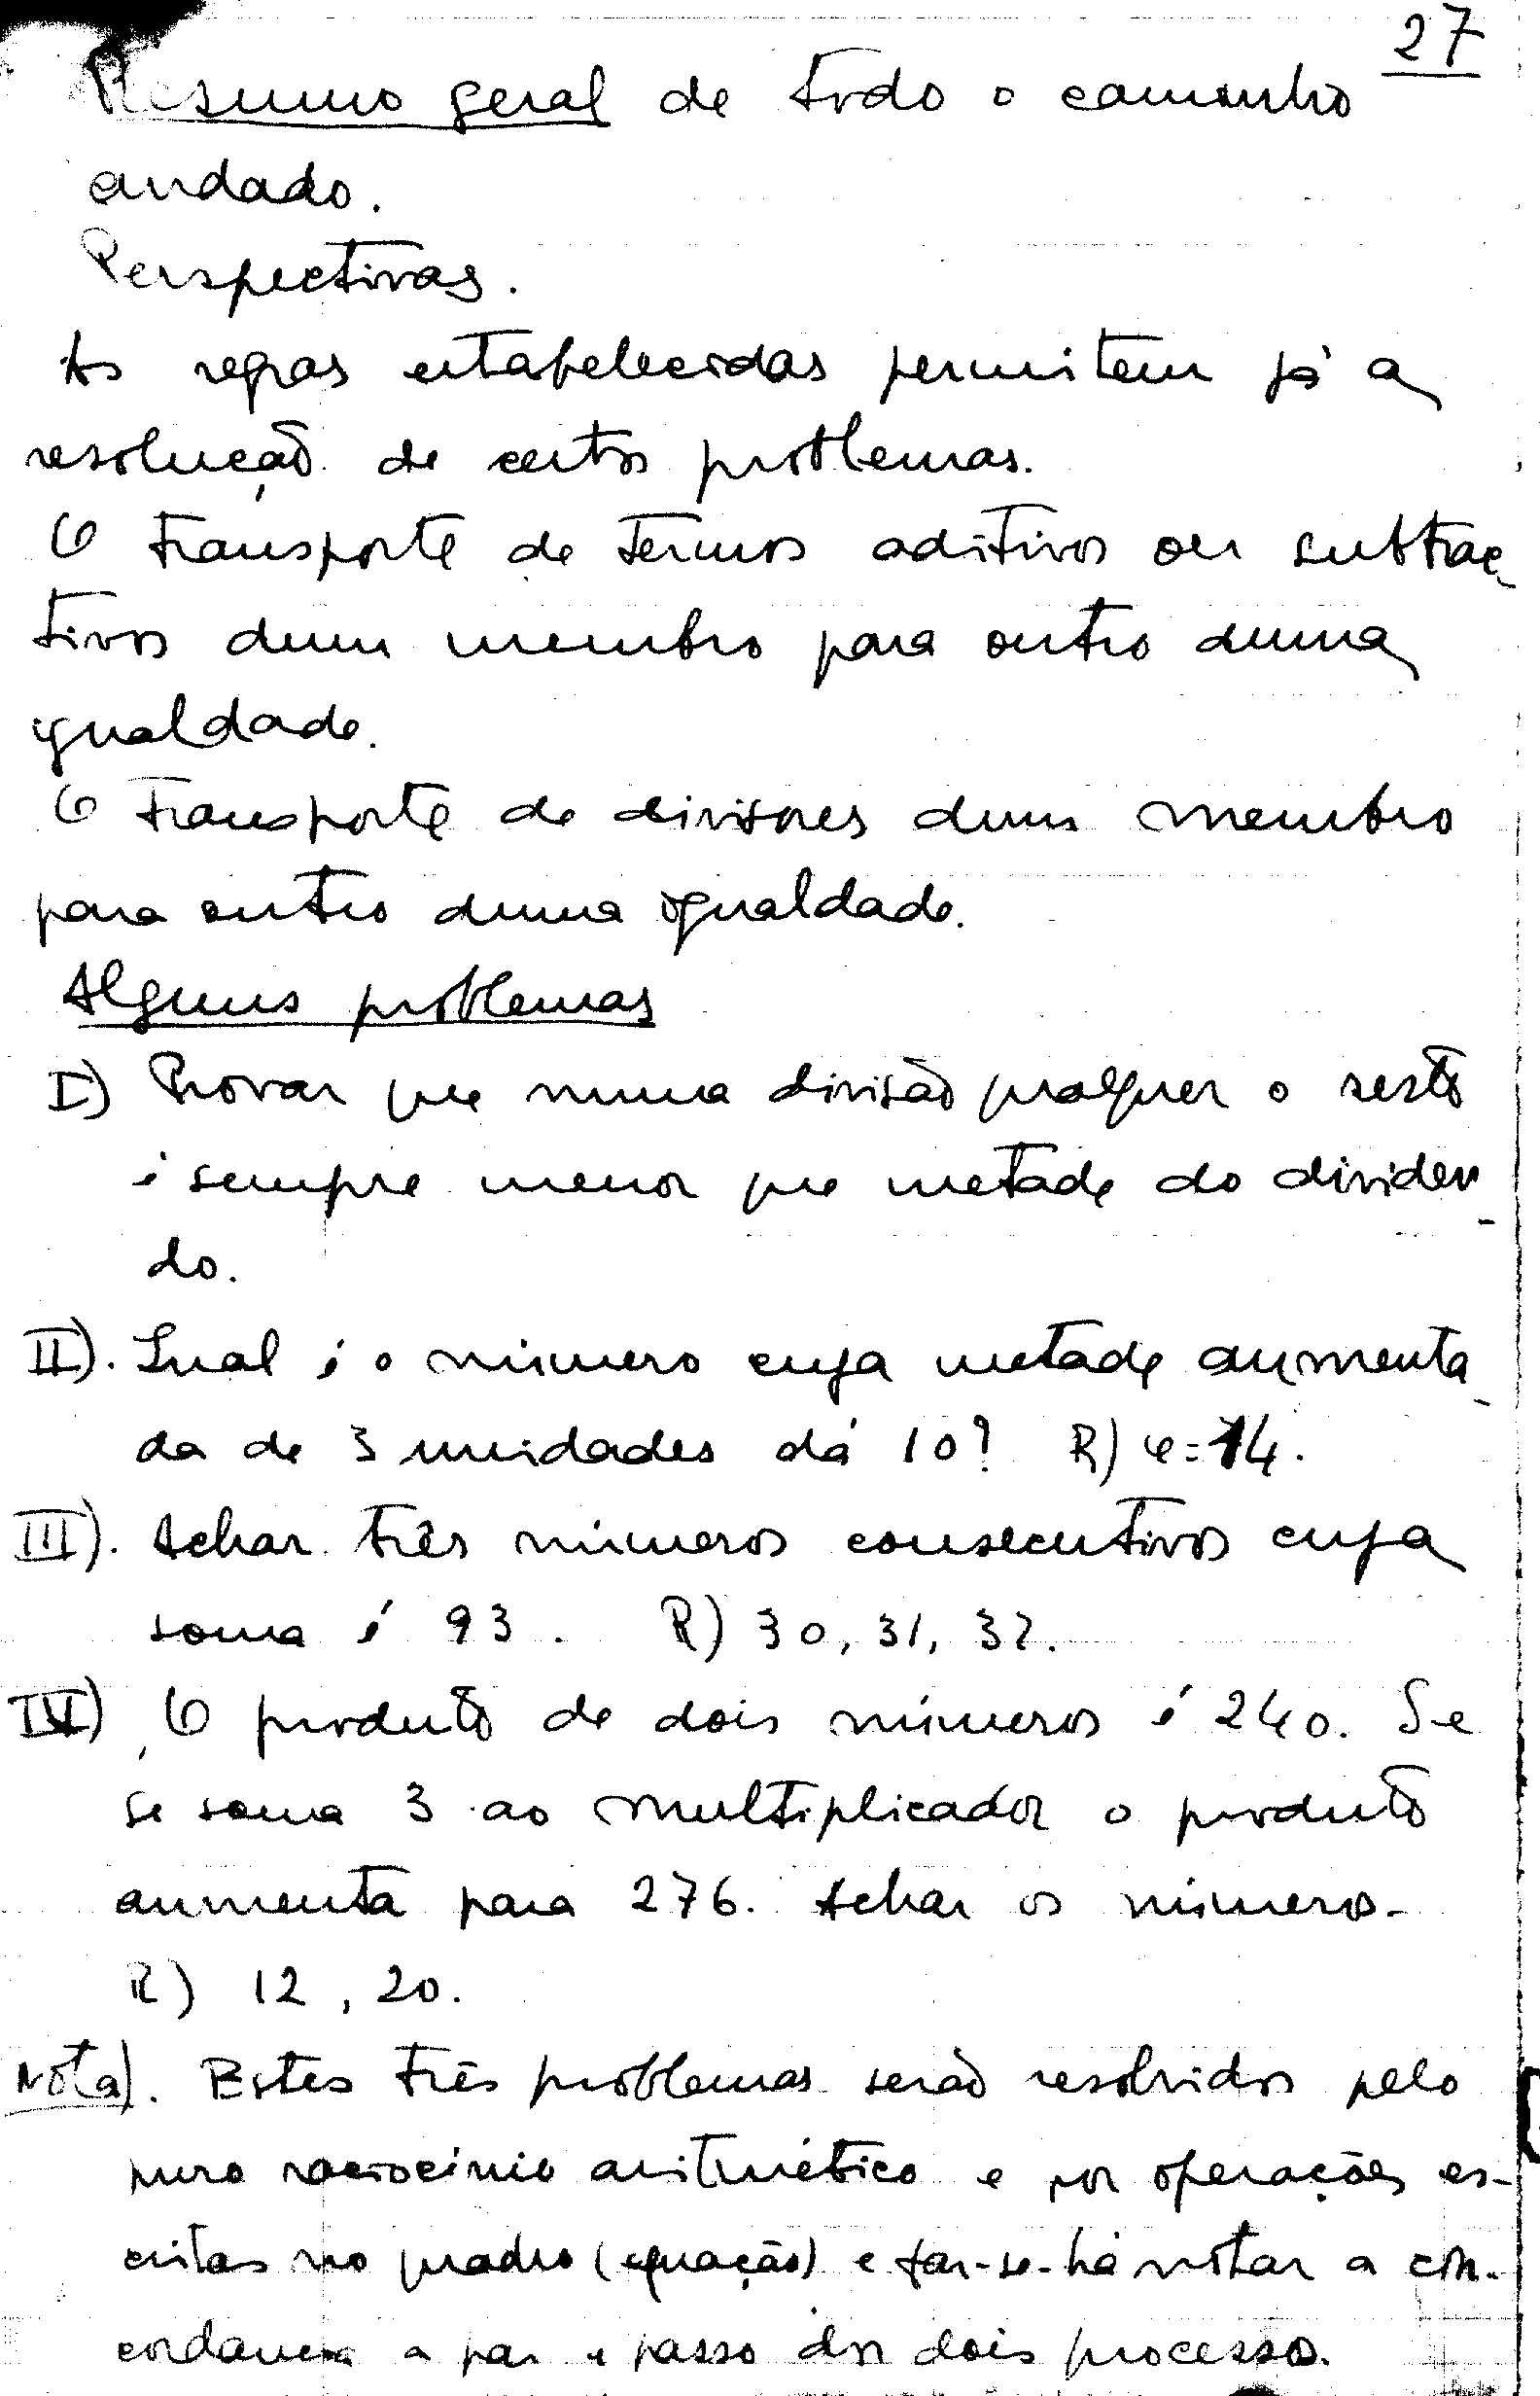 27
Resumo geral de todo o caminho
andado.
Perspectivas.
As regras estabelecidas permitem já a
resolução de certos problemas.
O transporte de termos aditivos ou subtrac-
tivos dum membro para outro duma
igualdade.
O transporte de divisores dum membro
para outro duma igualdade.
Alguns problemas
I) Provar que numa divisão qualquer o resto
é sempre menor que metade do dividen-
do.
II). Qual é o número cuja metade aumenta-
da de 3 unidades dá 10? R) e=14.
III). Achar três números consecutivos cuja
soma é 93. R) 30, 31, 32.
IV) O produto de dois números é 240. Se
se soma 3 ao multiplicador o produto
aumenta para 276. Achar os números.
R) 12, 20.
Nota). Estes três problemas serão resolvidos pelo
puro raciocínio aritmético e por operações es-
critas no quadro (equação) e far-se-há notar a con-
cordancia a par e passo dos dois processos.